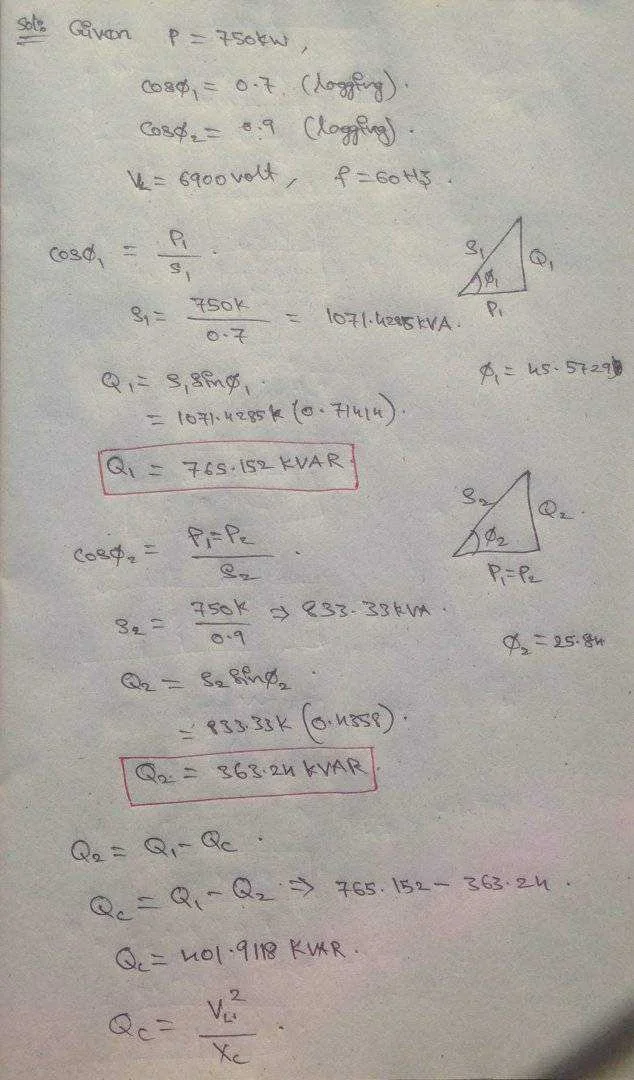 Sol: Given P = 750kW,
cosϕ₁ = 0.7 (lagging).
cosϕ₂ = 0.9 (lagging).
V_L = 6900 volt, f = 60Hz.
cosϕ₁ = P₁/S₁.
S₁ Q₁
ϕ₁
P₁
S₁ = 750k/0.7 = 1071.4285KVA.
ϕ₁ = 45.5729
Q₁ = S₁ sinϕ₁.
= 1071.4285k (0.71414).
Q₁ = 765.152 KVAR
S₂ Q₂
ϕ₂
P₁=P₂
cosϕ₂ = P₁=P₂/S₂.
S₂ = 750k/0.9 ⇒ 833.33KVA.
ϕ₂ = 25.84
Q₂ = S₂ sinϕ₂.
= 833.33k (0.4358).
Q₂ = 363.24 KVAR.
Q₂ = Q₁ - Qc.
Qc = Q₁ - Q₂ ⇒ 765.152 - 363.24.
Qc = 401.9118 KVAR.
Qc = V_L²/Xc.